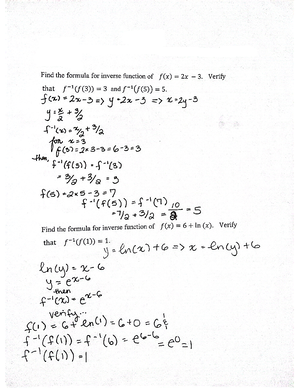 Find the formula for inverse function of f(x) = 2x − 3. Verify
that f⁻¹(f(3)) = 3 and f⁻¹(f(5)) = 5.
f(x) = 2x-3 => y = 2x-3 => x = 2y-3
y = x/2 + 3/2
f⁻¹(x) = x/2 + 3/2
for x = 3
f(3) = 2×3-3 = 6-3 = 3
then, f⁻¹(f(3)) = f⁻¹(3)
= 3/2 + 3/2 = 3
f(5) = 2×5-3 = 7
f⁻¹(f(5)) = f⁻¹(7)
= 7/2 + 3/2 = 10/2 = 5
Find the formula for inverse function of f(x) = 6 + ln(x). Verify
that f⁻¹(f(1)) = 1.
y = ln(x) + 6 => x = ln(y) + 6
ln(y) = x-6
y = e^x-6
then
f⁻¹(x) = e^x-6
verify...
f(1) = 6 + ln(1) = 6+0 = 6 &
f⁻¹(f(1)) = f⁻¹(6) = e^6-6 = e^0 = 1
f⁻¹(f(1)) = 1